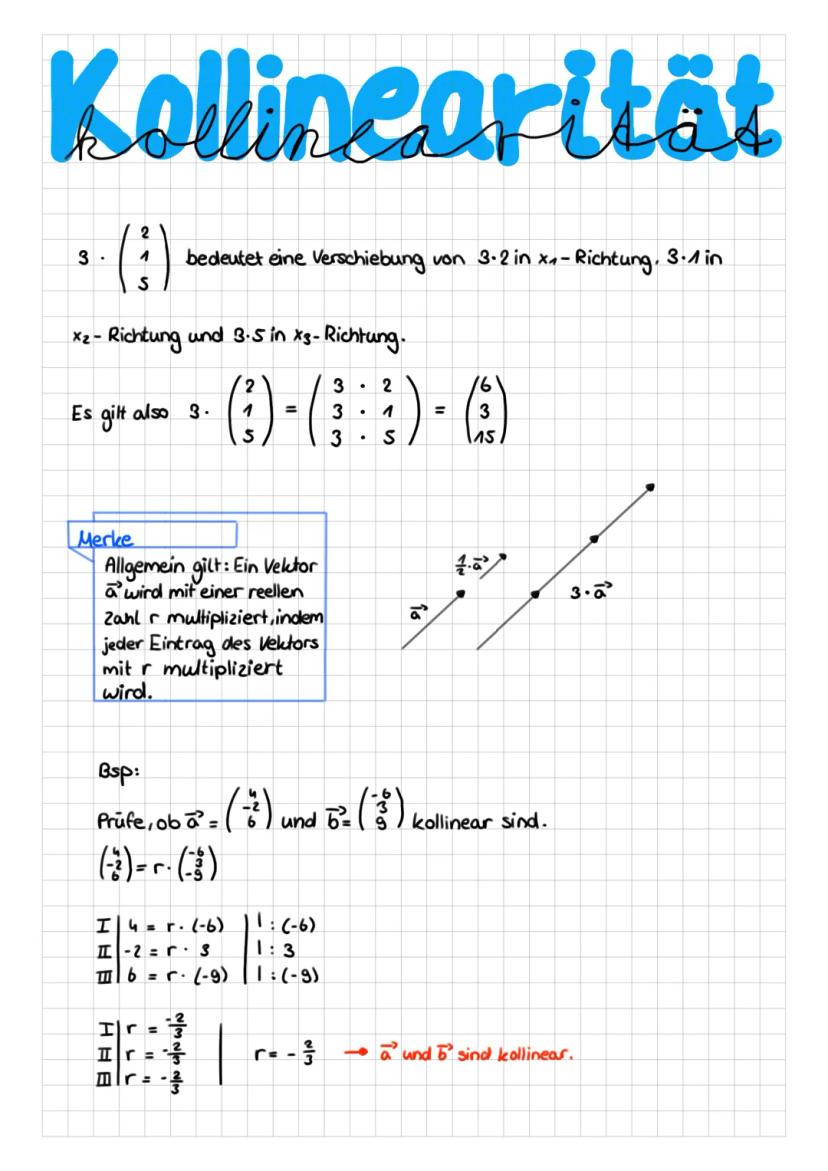 Kollinearität
kollinearität
3 · (2 1 5) bedeutet eine Verschiebung von 3·2 in x₁-Richtung, 3·1 in
x₂-Richtung und 3·5 in x₃-Richtung.
Es gilt also 3 · (2 1 5) = (3 · 2 3 · 1 3 · 5) = (6 3 15)
Merke
Allgemein gilt: Ein Vektor
a⃗ wird mit einer reellen
Zahl r multipliziert, indem
jeder Eintrag des Vektors
mit r multipliziert
wird.
a⃗
1/2·a⃗
3·a⃗
Bsp:
Prüfe, ob a⃗ = (4 -2 6) und b⃗ = (-6 3 9) kollinear sind.
(4 -2 6) = r · (-6 3 -9)
I | 4 = r · (-6) | | : (-6)
II | -2 = r · 3 | | : 3
III | 6 = r · (-9) | | : (-9)
I | r = -2/3
II | r = -2/3 | r = - 2/3 → a⃗ und b⃗ sind kollinear.
III | r = -2/3